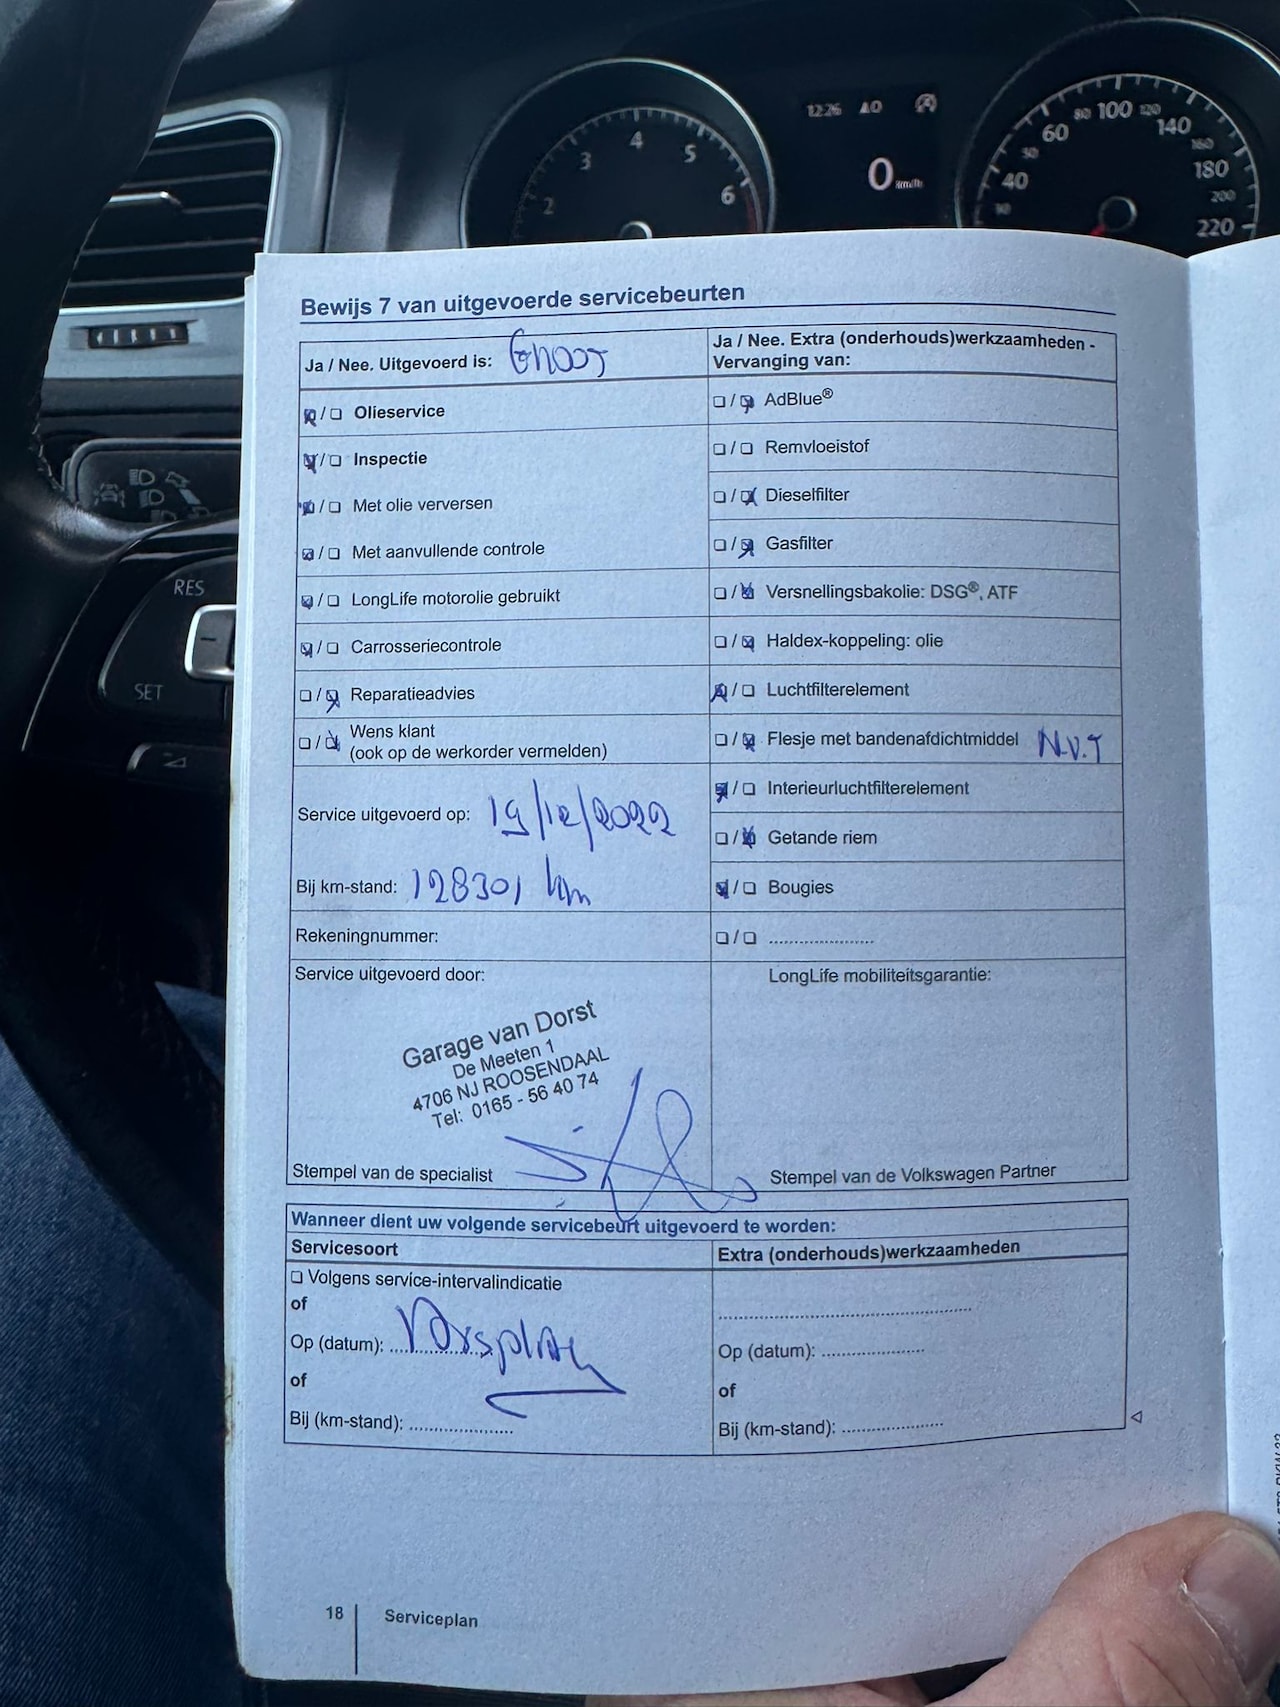 12:26
0 km/h
2 3 4 5 6
40 60 80 100 120 140 160 180 200 220
RES
SET
Bewijs 7 van uitgevoerde servicebeurten
Ja / Nee. Uitgevoerd is: Groot
☒ / ☐ Olieservice
☒ / ☐ Inspectie
☒ / ☐ Met olie verversen
☒ / ☐ Met aanvullende controle
☒ / ☐ LongLife motorolie gebruikt
☒ / ☐ Carrosseriecontrole
☐ / ☒ Reparatieadvies
☐ / ☒ Wens klant
(ook op de werkorder vermelden)
Service uitgevoerd op: 19/12/2022
Bij km-stand: 128301 km
Rekeningnummer:
Service uitgevoerd door:
Garage van Dorst
De Meeten 1
4706 NJ ROOSENDAAL
Tel: 0165 - 56 40 74
Stempel van de specialist
Ja / Nee. Extra (onderhouds)werkzaamheden -
Vervanging van:
☐ / ☒ AdBlue®
☐ / ☐ Remvloeistof
☐ / ☒ Dieselfilter
☐ / ☒ Gasfilter
☐ / ☒ Versnellingsbakolie: DSG®, ATF
☐ / ☒ Haldex-koppeling: olie
☒ / ☐ Luchtfilterelement
☐ / ☒ Flesje met bandenafdichtmiddel N.v.T
☒ / ☐ Interieurluchtfilterelement
☐ / ☒ Getande riem
☒ / ☐ Bougies
☐ / ☐ ......................
LongLife mobiliteitsgarantie:
Stempel van de Volkswagen Partner
Wanneer dient uw volgende servicebeurt uitgevoerd te worden:
Servicesoort
☐ Volgens service-intervalindicatie
of
Op (datum):
of
Bij (km-stand): ......................
Extra (onderhouds)werkzaamheden
......................
Op (datum): ......................
of
Bij (km-stand): ......................
18 Serviceplan